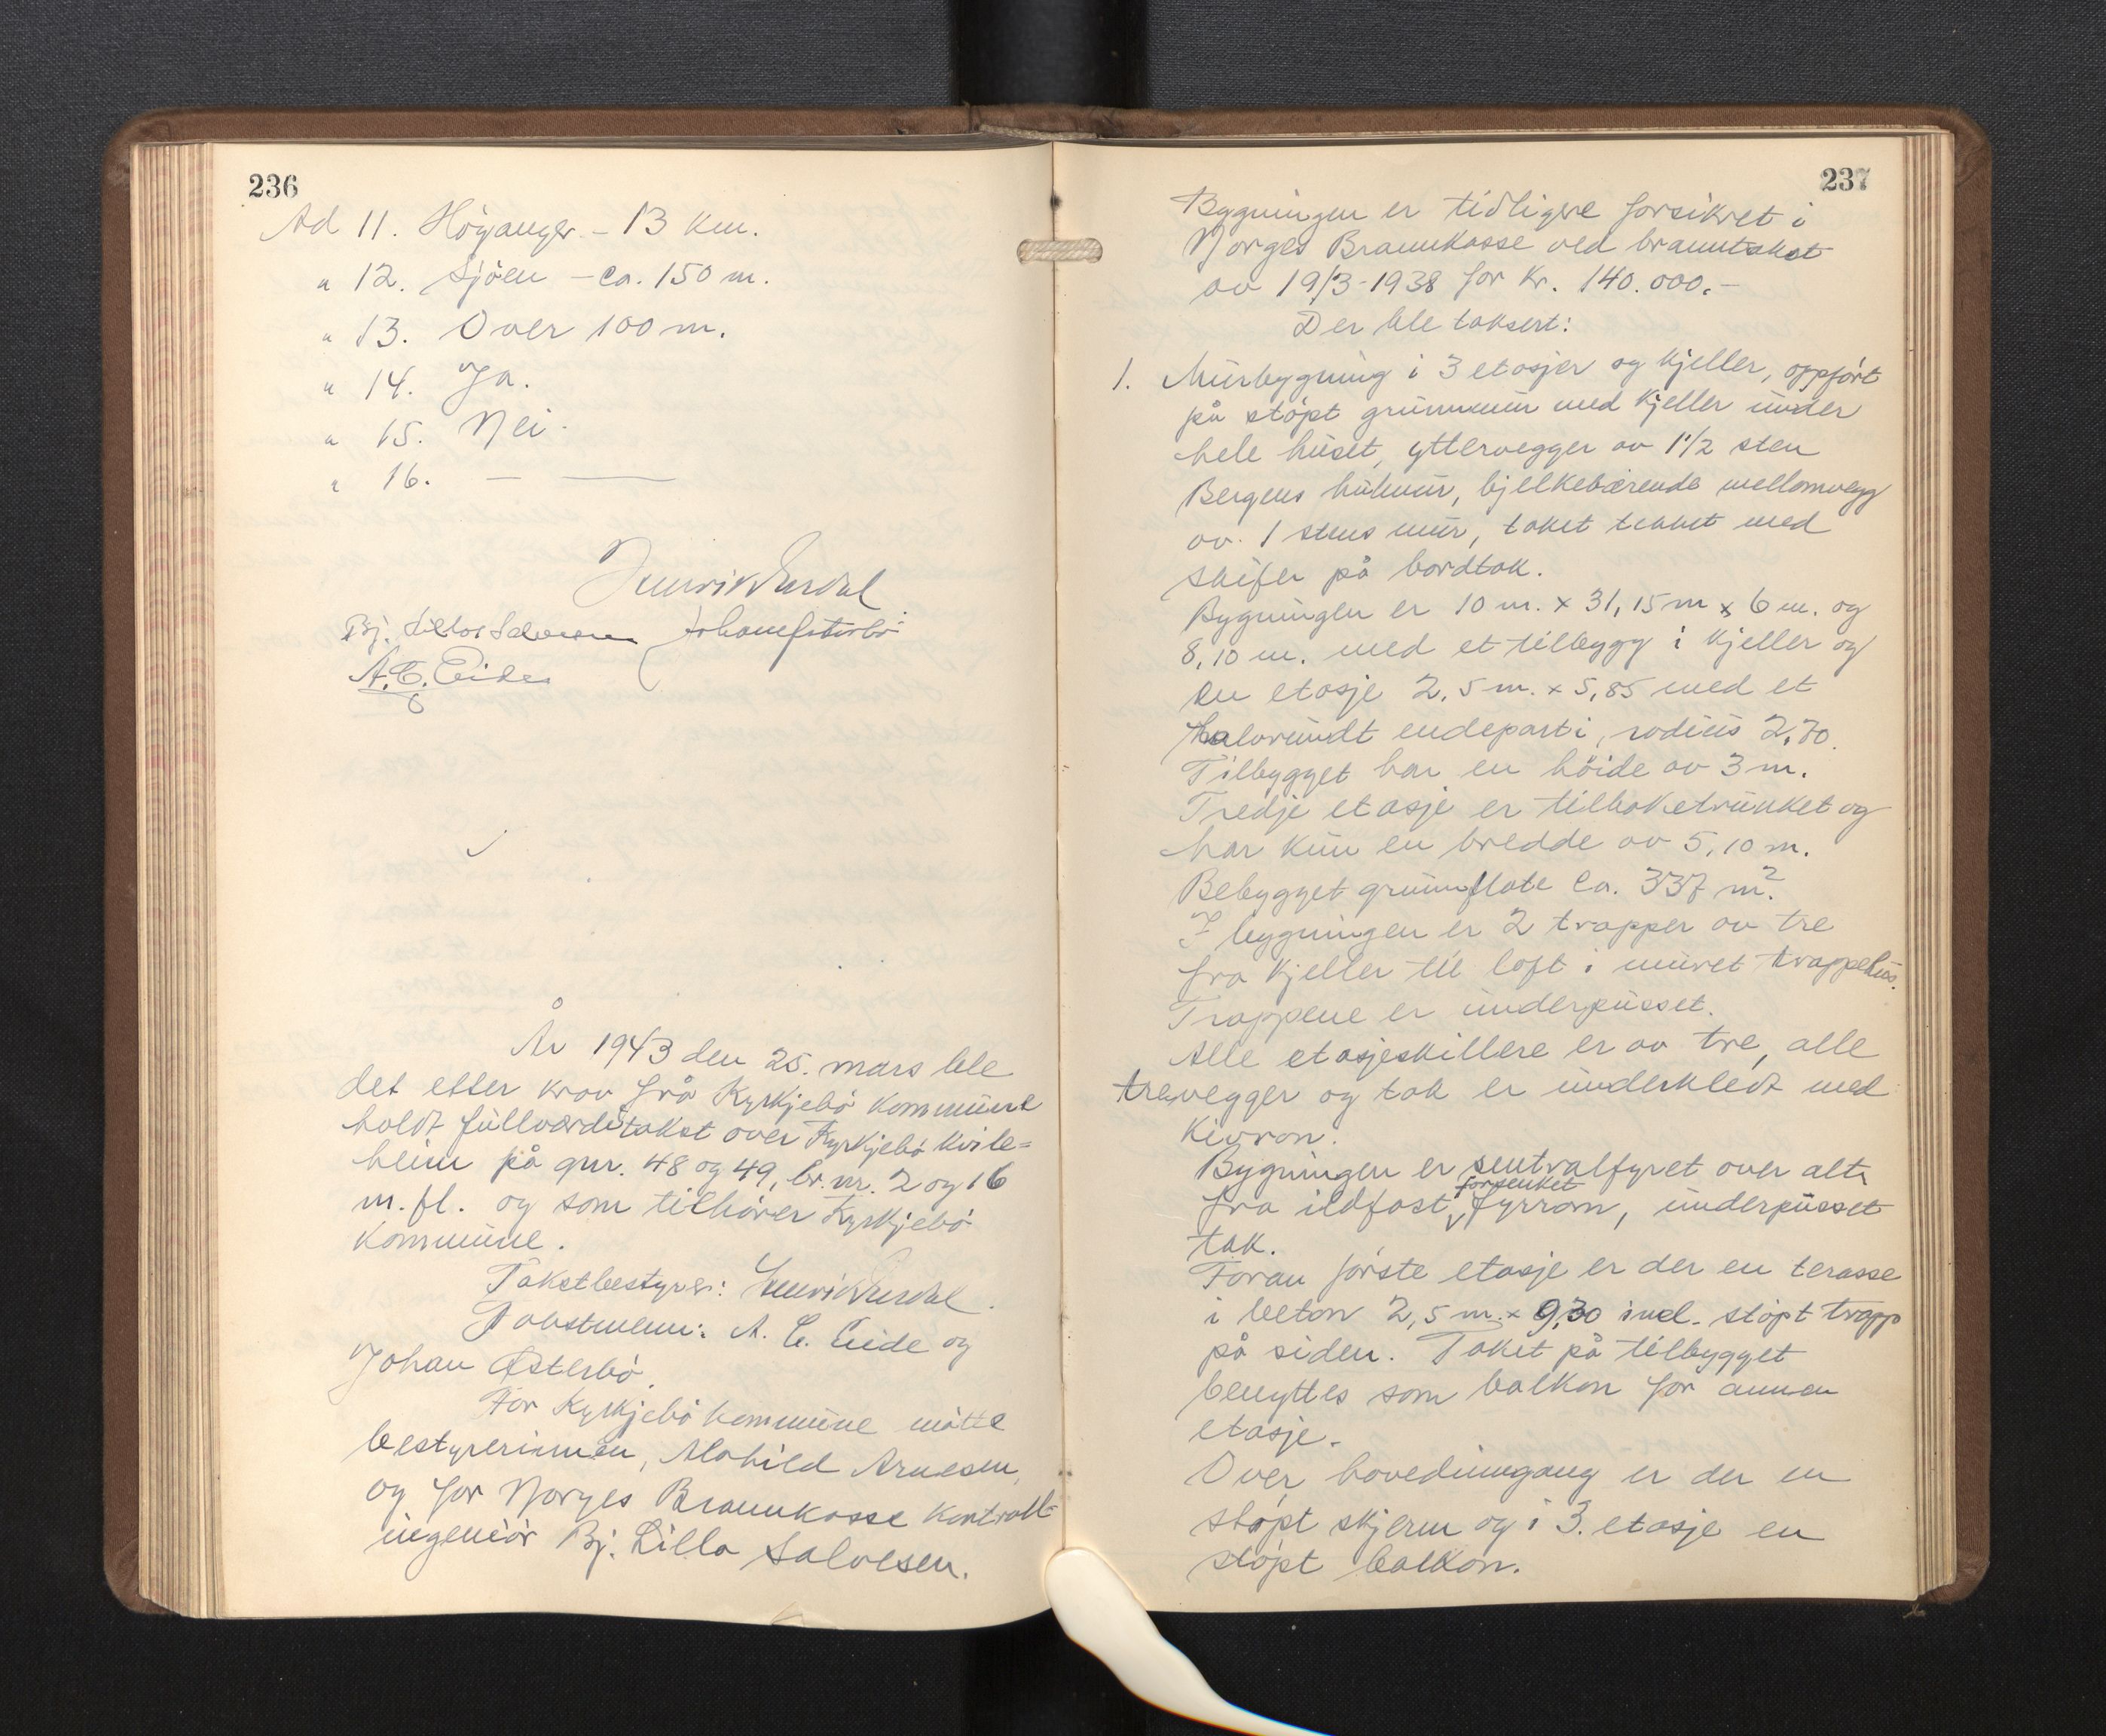 236
Ad 11. Höyanger - 13 km.
" 12. Sjöen - ca. 150 m.
" 13. Over 100 m.
" 14. Ja.
" 15. Nei.
" 16. — —
Bj. Lilloe Salvesen
A. C. Eide
År 1943 den 25. mars ble
det etter krav frå Kyrkjebö kommune
holdt fullverditakst over Kyrkjebö kvile=
heim på gnr. 48 og 49, br. nr. 2 og 16
m. fl. og som tilhörer Kyrkjebö
kommune.
Takstbestyrer:
Takstmenn: A. C. Eide og
Johan Østerbö.
For Kyrkjebö kommune mötte
bestyrerinnen, Alohild Arnesen,
og for Norges Brannkasse kontroll-
ingeniör Bj. Lillo Salvesen.
237
Bygningen er tidligere forsikret i
Norges Brannkasse ved branntakst
av 19/3-1938 for kr. 140.000.-
Der ble taksert:
1. Murbygning i 3 etasjer og kjeller, oppfört
på stöpt grunnmur med kjeller under
hele huset, yttervegger av 1 1/2 sten
Bergens hulmur, bjelkebærende mellomvegg
av 1 stens mur, taket tekket med
skifer på bordtak.
Bygningen er 10 m. x 31,15 m x 6 m. og
8,10 m. med et tilbygg i kjeller og
en etasje 2,5 m. x 5,85 med et
halvrundt endeparti, radius 2,70.
Tilbygget har en höide av 3 m.
Tredje etasje er tilbaketrukket og
har kun en bredde av 5,10 m.
Bebygget grunnflate ca. 337 m².
I bygningen er 2 trapper av tre
fra kjeller til loft i muret trappehus.
Trappene er underpusset.
Alle etasjeskillere er av tre, alle
trevegger og tak er underkledt med
Kivron.
Bygningen er sentralfyret over alt
fra ildfast forsenket fyrrom, underpusset
tak.
Foran förste etasje er der en terasse
i beton 2,5 m. x 9,30 incl. stöpt trapp
på siden. Taket på tilbygget
benyttes som balkon for annen
etasje.
Over hovedinngang er der en
stöpt skjerm og i 3. etasje en
stöpt balkon.